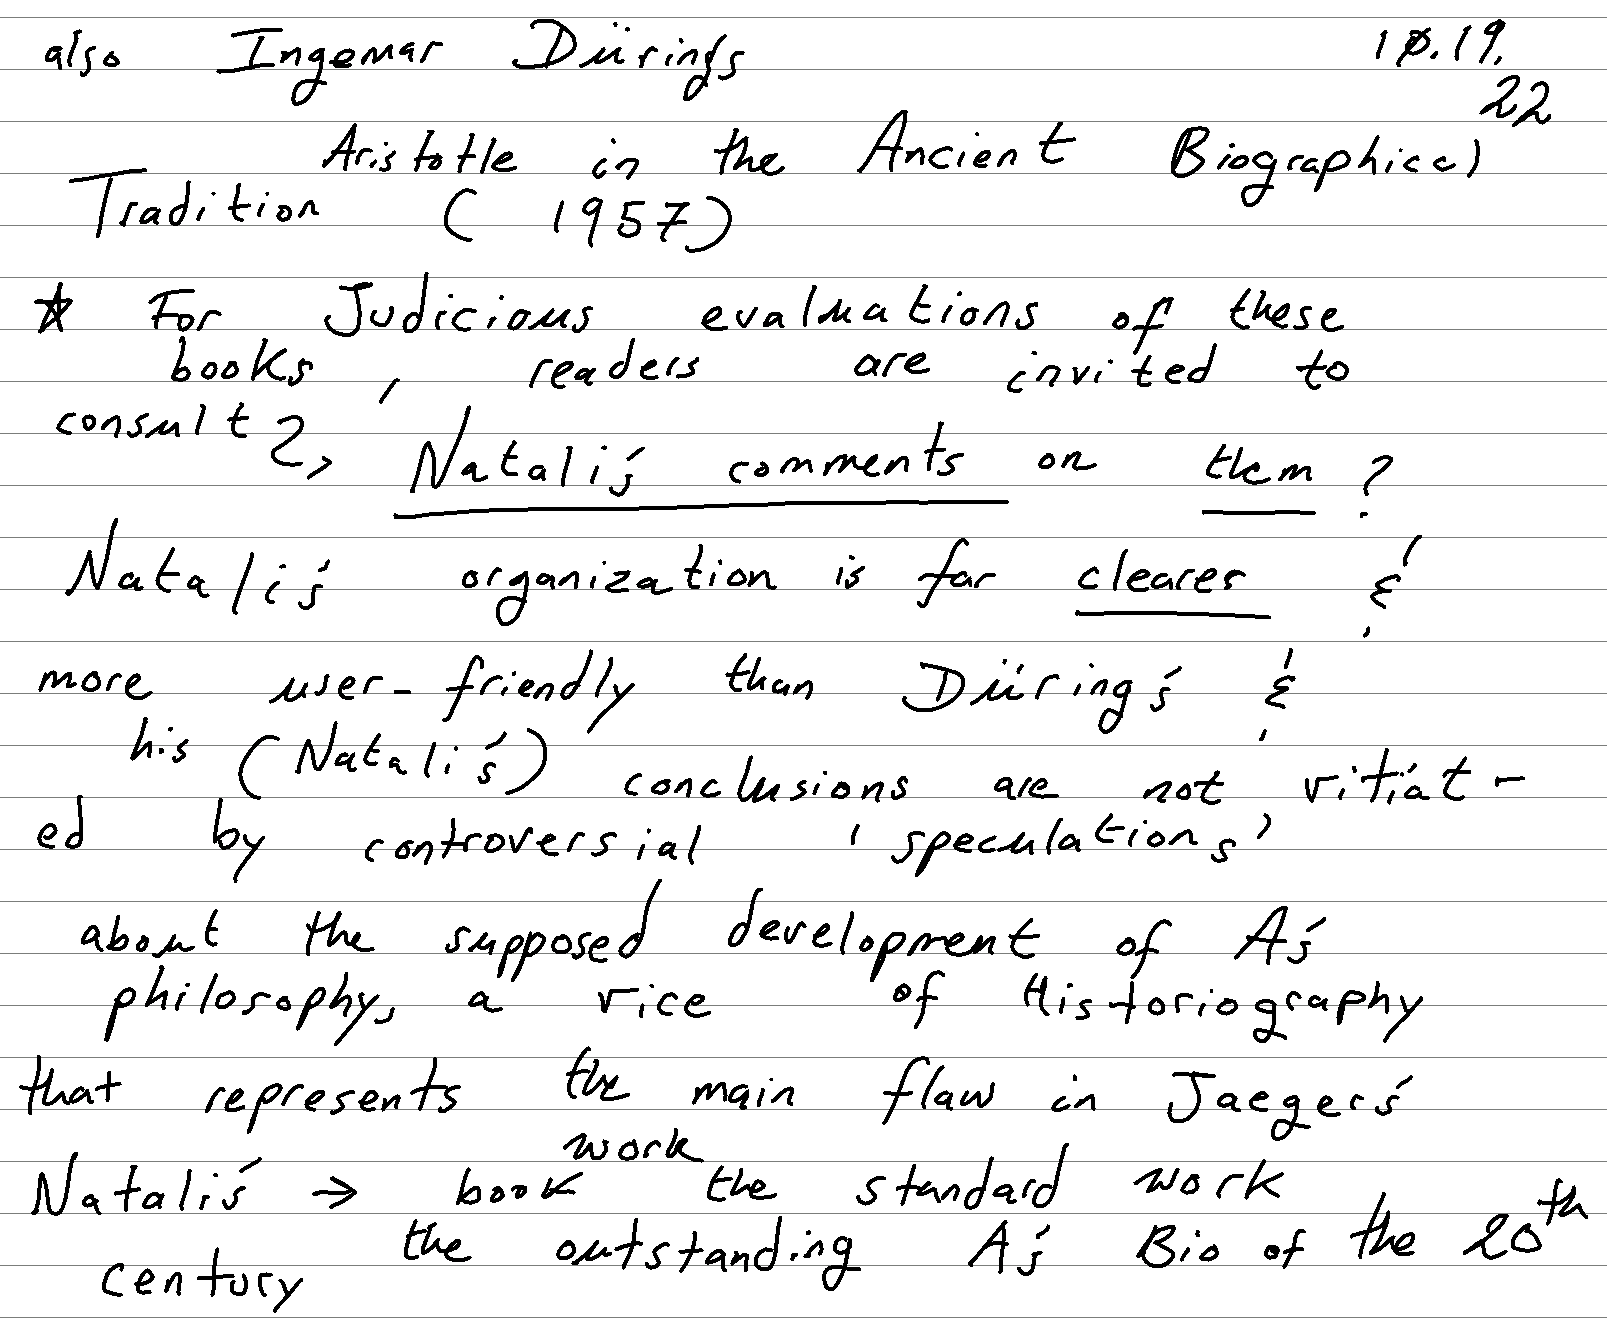 also Ingemar Düring's 10.19.
22
Aristotle in the Ancient Biographical
Tradition ( 1957)
* For Judicious evaluations of these
books, readers are invited to
consult ?, Natali's comments on them ?
Natali's organization is far clearer &
more user-friendly than Düring's &
his (Natali's) conclusions are not vitiat-
ed by controversial 'speculations'
about the supposed development of A's
philosophy, a vice of Historiography
that represents the main flaw in Jaeger's
work
Natali's → book the standard work
the outstanding A's Bio of the 20th
century